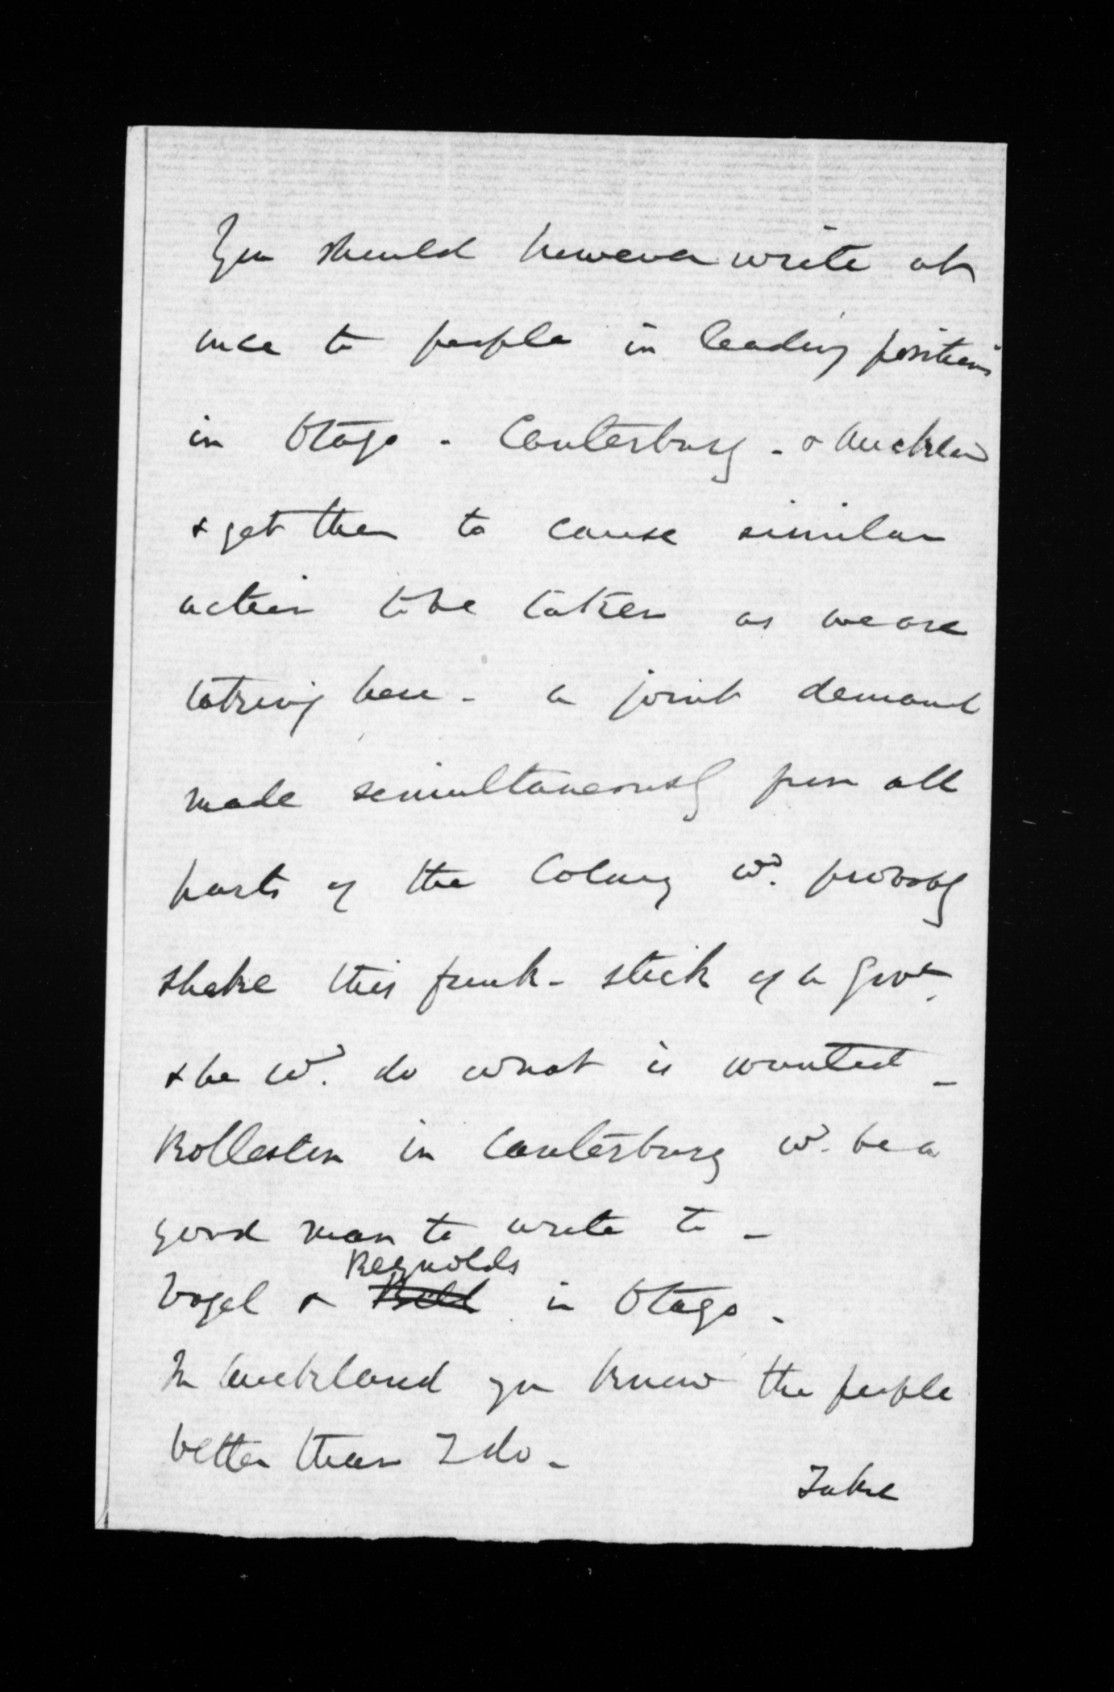 You should however write at
once to people in leading positions
in Otago - Canterbury - & Auckland
& get them to cause similar
action to be taken as we are
taking here - a joint demand
made simultaneously from all
parts of the Colony wd. probably
shake this funk-stick of a Govr.
& he wd. do what is wanted -
Rolleston in Canterbury wd. be a
good man to write to -
Reynolds
Vogel & Bell in Otago -
In Auckland you know the people
better than I do -
Take